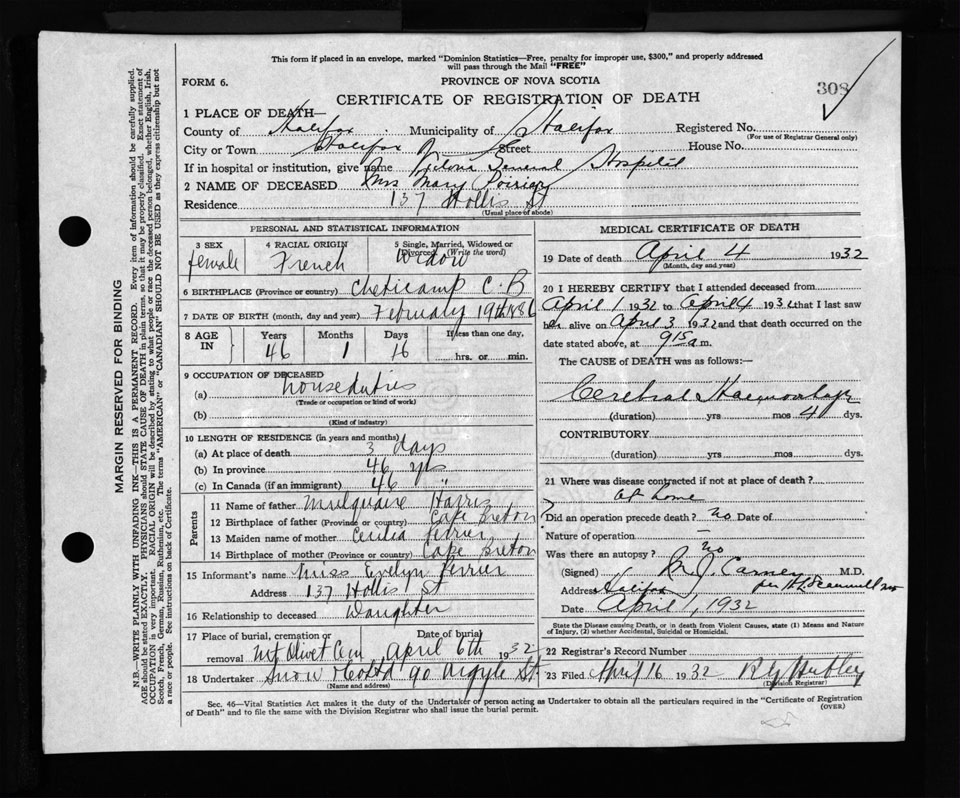 This form if placed in an envelope, marked "Dominion Statistics—Free, penalty for improper use, $300," and properly addressed
will pass through the Mail "FREE"
FORM 6.
PROVINCE OF NOVA SCOTIA
308
CERTIFICATE OF REGISTRATION OF DEATH
1 PLACE OF DEATH—
County of Halifax Municipality of Halifax Registered No.
(For use of Registrar General only)
City or Town Halifax Street House No.
If in hospital or institution, give name Victoria General Hospital
2 NAME OF DECEASED Mrs Mary Poirier
Residence 137 Hollis St
(Usual place of abode)
PERSONAL AND STATISTICAL INFORMATION
3 SEX 4 RACIAL ORIGIN 5 Single, Married, Widowed or
Divorced (Write the word)
female French Widow
6 BIRTHPLACE (Province or country) Cheticamp C.B
7 DATE OF BIRTH (month, day and year) February 19th 1886
8 AGE IN Years Months Days If less than one day,
46 1 16 hrs. or min.
9 OCCUPATION OF DECEASED
(a) house duties
(Trade or occupation or kind of work)
(b)
(Kind of industry)
10 LENGTH OF RESIDENCE (in years and months)
(a) At place of death 3 days
(b) In province 46 yrs
(c) In Canada (if an immigrant) 46 "
Parents
11 Name of father Harris
12 Birthplace of father (Province or country) Cape Breton
13 Maiden name of mother Cecilia
14 Birthplace of mother (Province or country) Cape Breton
15 Informant's name Miss Evelyn
Address 137 Hollis St
16 Relationship to deceased Daughter
17 Place of burial, cremation or Date of burial
removal Mt Olivet Cem April 6th 1932
18 Undertaker Snow & Co Ltd 90 Argyle St
(Name and address)
MEDICAL CERTIFICATE OF DEATH
19 Date of death April 4 1932
(Month, day and year)
20 I HEREBY CERTIFY that I attended deceased from
April 1 1932 to April 4 1932 that I last saw
her alive on April 3 1932 and that death occurred on the
date stated above, at 9 15 a m.
The CAUSE OF DEATH was as follows:—
Cerebral Haemorrhage
(duration) yrs mos 4 dys.
CONTRIBUTORY
(duration) yrs mos dys.
21 Where was disease contracted if not at place of death?
at home
Did an operation precede death? no Date of
Nature of operation —
Was there an autopsy? no
(Signed) Carney M.D.
Address Halifax per
Date April, 1932
State the Disease causing Death, or in death from Violent Causes, state (1) Means and Nature
of Injury, (2) whether Accidental, Suicidal or Homicidal.
22 Registrar's Record Number
23 Filed April 16 1932
(Division Registrar)
Sec. 46—Vital Statistics Act makes it the duty of the Undertaker or person acting as Undertaker to obtain all the particulars required in the "Certificate of Registration
of Death" and to file the same with the Division Registrar who shall issue the burial permit.
(OVER)
MARGIN RESERVED FOR BINDING
N.B.—WRITE PLAINLY WITH UNFADING INK—THIS IS A PERMANENT RECORD. Every item of information should be carefully supplied.
AGE should be stated EXACTLY. PHYSICIANS should STATE CAUSE OF DEATH in plain terms, so that it may be properly classified. Exact statement of
OCCUPATION is very important. RACIAL ORIGIN will be described by stating to what people or race the deceased person belonged, whether English, Irish,
Scotch, French, German, Russian, Ruthenian, etc. The terms "AMERICAN" or "CANADIAN" SHOULD NOT BE USED as they express citizenship but not
a race or people. See instructions on back of Certificate.